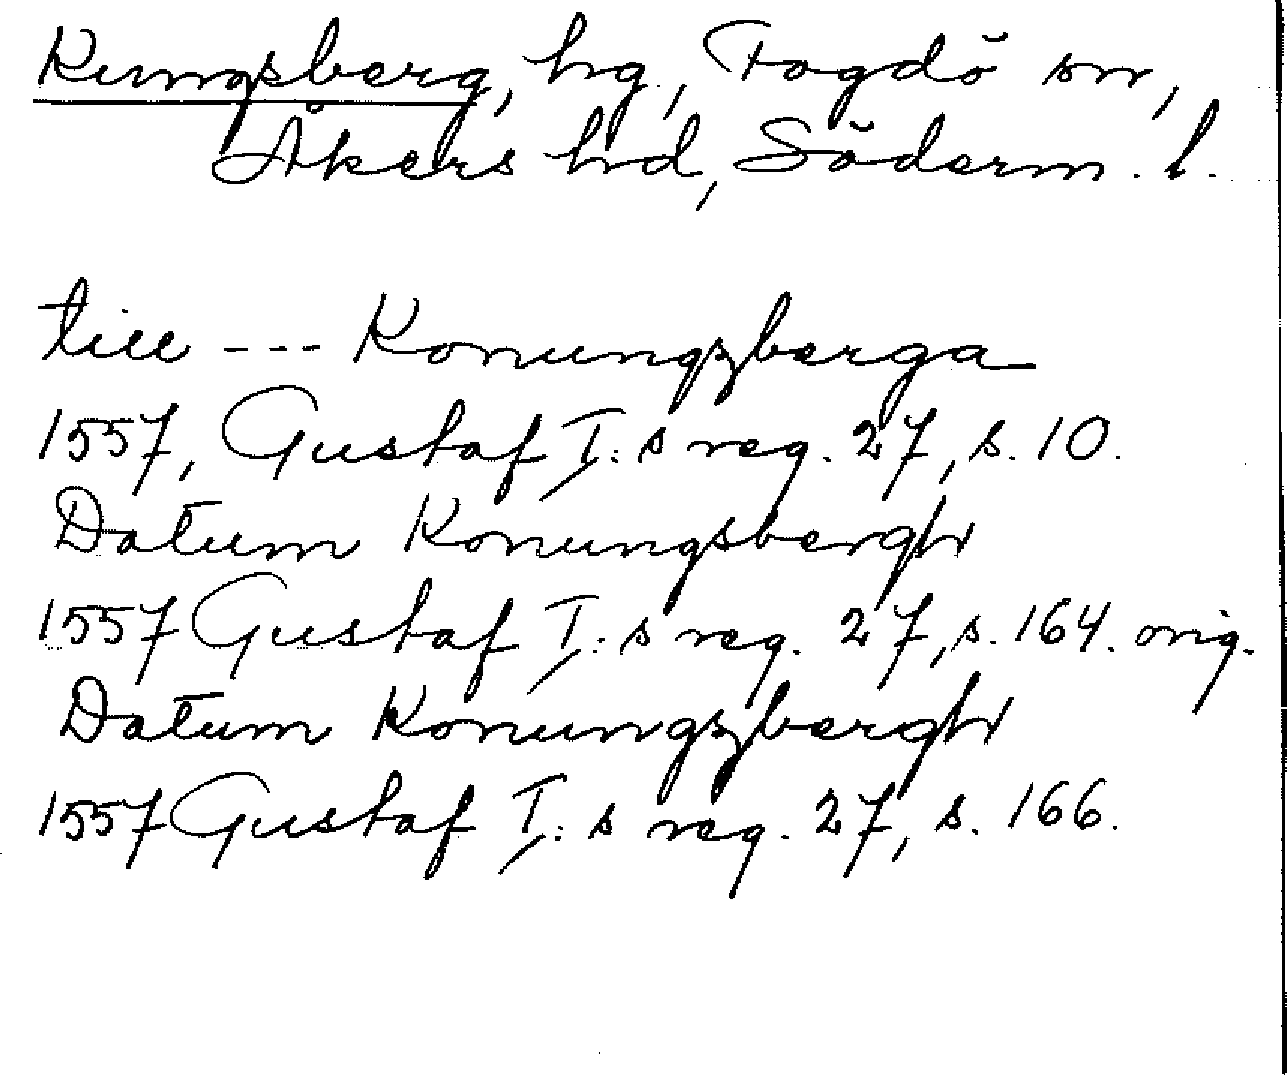 Kungsberg, hg, Fogdö sn,
Åkers hd, Söderm. l.
till --- Konungzberga
1557, Gustaf I:s reg. 27, s. 10.
Datum Konungsbergh
1557 Gustaf I:s reg. 27, s. 164. orig.
Datum Konungzbergh
1557 Gustaf I:s reg. 27, s. 166.